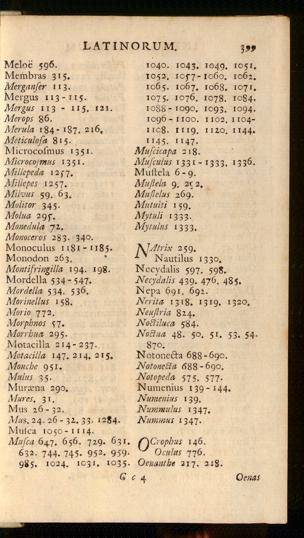 LATINORUM. 399
Meloë 596.
Membras 315.
Merganser 113.
Mergus 113-115.
Mergus 113-115, 121.
Merops 86.
Merula 184-187, 216.
Meticulosa 815.
Microcoſmus 1351.
Microcoſmus 1351.
Millepeda 1257.
Millepes 1257.
Milvus 59. 63.
Molitor 345.
Molua 295.
Monedula 72.
Monoceros 283. 340.
Monoculus 1181-1185.
Monodon 263.
Montifringilla 194. 198.
Mordella 534-547.
Mordella 534. 536.
Morinellus 158.
Morio 772.
Morphnos 57.
Morrhua 295.
Motacilla 214-237.
Motacilla 147. 214. 215.
Mouche 951.
Mulus 35.
Muræna 290.
Mures. 31.
Mus 26-32.
Mus. 24. 26-32. 33. 1284.
Muſca 1050-1114.
Muſca 647. 656. 729. 631.
632. 744. 745. 952. 959.
985. 1024. 1031. 1035.
1040. 1043. 1049. 1051.
1052. 1057-1060. 1062.
1065. 1067. 1068. 1071.
1075. 1076. 1078. 1084.
1088-1090. 1093. 1094.
1096-1100. 1102. 1104-
1108. 1119. 1120. 1144.
1145. 1147.
Muſcicapa 218.
Muſculus 1331-1333. 1336.
Muſtela 6-9.
Muſtela 9. 252.
Muſtelus 269.
Mutuiti 159.
Mytuli 1333.
Mytulus 1333.
NAtrix 259.
Nautilus 1330.
Necydalis 597. 598.
Necydalis 439. 476. 485.
Nepa 691. 692.
Nerita 1318. 1319. 1320.
Neuſtria 824.
Noctiluca 584.
Noctua 48. 50. 51. 53. 54.
870.
Notonecta 688-690.
Notonecta 688-690.
Notopeda 575. 577.
Numenius 139-144.
Numenius 139.
Nummulus 1347.
Nummus 1347.
OCrophus 146.
Oculas 776.
Oenanthe 217. 218.
G c 4 Oenas